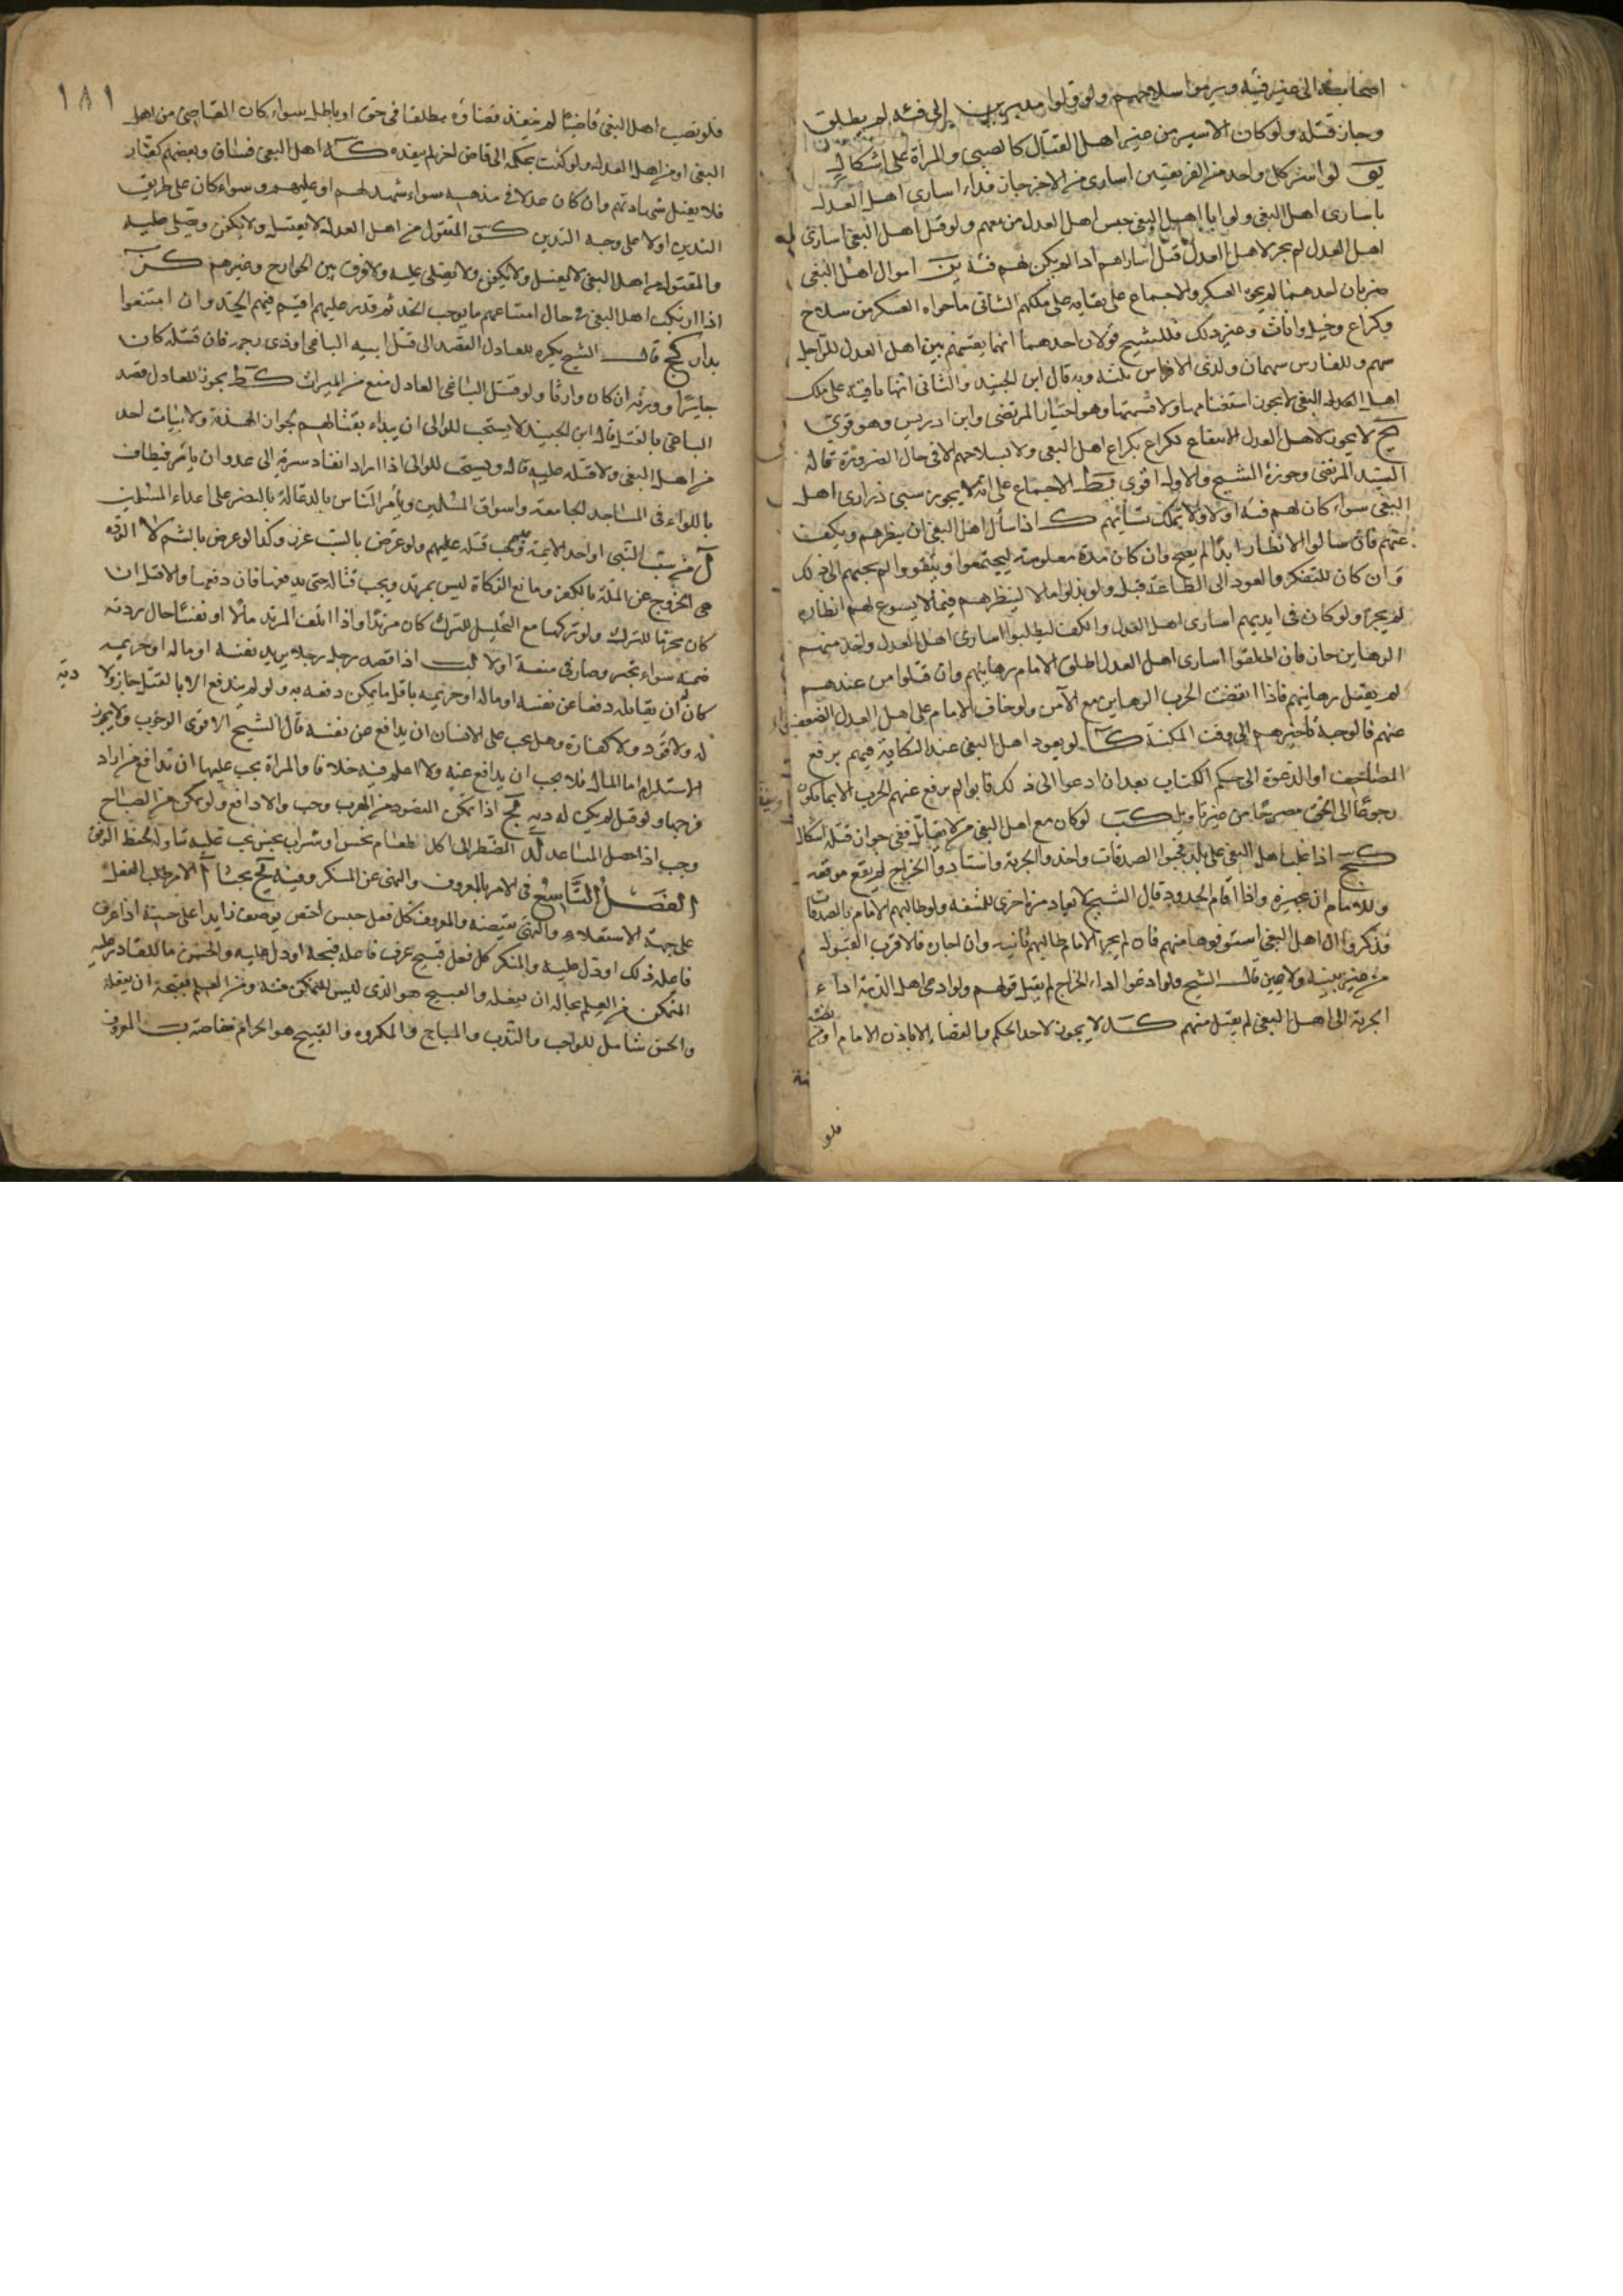 اصحابه الى غير فئة ويرموا سلاحهم ولو ولوا مدبرين الى فئة لم يطلق
وجاز قتله ولو كان الاسير من غير اهل القتال كالصبي والمرأة على اشكال
يو لو اسر كل واحد من الفريقين اسارى من الاخر جاز فداء اسارى اهل العدل
باسارى اهل البغي ولو ابا اهل البغي حبس اهل العدل من معهم ولو قتل اهل البغي اسارى
اهل العدل لم يجز لاهل العدل قتل اساراهم اذا لم يكن لهم فئة يز اموال اهل البغي
ضربان احدهما لم يحوه العسكر والاجماع على بقايه على ملكهم الثاني ما حواه العسكر من سلاح
وكراع وخيل واثاث وغير ذلك فللشيخ قولان احدهما انها يقسم بين اهل العدل للراجل
سهم وللفارس سهمان ولذي الافراس ثلثه وبه قال ابن الجنيد والثاني انها باقية على ملك
اهل البغي لا يجوز استغنامها ولا قسمتها وهو اختيار المرتضى وابن ادريس وهو قوي
يح لا يجوز لاهل العدل الانتفاع بكراع اهل البغي ولا بسلاحهم الا في حال الضرورة قاله
السيد المرتضى وجوزه الشيخ والاول اقوى يط الاجماع على انه لا يجوز سبي ذراري اهل
البغي سواء كان لهم فئة اولا ولا تملك نسائهم ك اذا سأل اهل البغي ان ينظرهم ويكف
عنهم فان سالوا الانظار ابدا لم يصح وان كان مدة معلومة ليجتمعوا ويتقووا لم يجبهم الى ذلك
وان كان للتفكر والعود الى الطاعة قبله ولو بذلوا مالا لينظرهم فيما لا يسوغ لهم انظاره
لم يجز ولو كان في ايديهم اسارى اهل العدل والكف ليطلبوا اسارى اهل العدل واخذ منهم
الرهاين جاز فان اطلقوا اسارى اهل العدل اطلق الامام رهاينهم وان قتلوا من عندهم
لم يقتل رهاينهم فاذا انقضت الحرب الرهاين مع الآمن ولو خاف الامام على اهل العدل الضعف
عنهم فالوجه تاخيرهم الى وقت المكنة كا لو يعود اهل البغي عند النكاية فيهم برفع
المصاحف او الدعوة الى حكم الكتاب بعد ان ادعوا الى ذلك فابوا لم يرفع عنهم الحرب الا بما يكون
رجوعا الى الحق مصرحا من غير تاويل كب لو كان مع اهل البغي من لا يقاتل ففي جواز قتله اشكال
كج اذا غلب اهل البغي على بلد فجبوا الصدقات واخذوا الجزية واستأدوا الخراج لم يقع موقعه
وللامام ان يجيزه واذا اقام الحدود قال الشيخ لا يعاد مرة اخرى للمشقة ولو طالبهم الامام بالصدقات
فذكروا ان اهل البغي استوفوها منهم فان لم يجز الامام طالبهم ثانيه وان اجازه فالاقرب القبول
من غير بينة ولا يمين قال الشيخ ولو ادعوا اداء الخراج لم يقبل قولهم ولو ادعى اهل الذمة اداء
الجزية الى اهل البغي لم يقبل منهم كد لا يجوز لاحد الحكم والقضاء الا باذن الامام او من
فلو
١٨١
فلو نصب اهل البغي قاضيا لم ينفذ قضاؤه مطلقا في حق او باطل سواء كان القاضي من اهل
البغي او من اهل العدل ولو كتب بحكمه الى قاض اخر لم ينفذه كه اهل البغي فساق وبعضهم كفار
فلا يقبل شهادتهم وان كان عدلا في مذهبه سواء شهد لهم او عليهم وسواء كان على طريق
التدين اولا على وجه التدين كو المقتول من اهل العدل لا يغسل ولا يكفن ويصلى عليه
والمقتول من اهل البغي لا يغسل ولا يكفن ولا يصلى عليه ولا فرق بين الخوارج وغيرهم كز
اذا ارتكب اهل البغي في حال امتناعهم ما يوجب الحد ثم قدر عليهم اقيم فيهم الحد وان امتنعوا
بدار كح قال الشيخ يكره للعادل القصد الى قتل ابيه الباغي او ذي رحمه فان قتله كان
جايزا وورثه ان كان وارثا ولو قتل الباغي العادل منع من الميراث كط يجوز للعادل قصد
الباغي بالقتل قال ابن الجنيد لا يستحب للوالي ان يبداء بقتالهم لجواز الهدنة ولا بيات احد
من اهل البغي ولا قتله غليه قال ويستحب للوالي اذا اراد انفاد سرية الى عدو ان يأمر فيطاف
باللواء في المساجد الجامعة واسواق المسلمين ويأمر الناس بالدعاء له بالنصر على اعداء المسلمين
ل من سب النبي او احد الائمة وجب قتله عليهم ولو عرض بالسب عزر وكذا لو عرض بالشم لا الردة
هي الخروج عن الملة بالكفر ومانع الزكاة ليس بمرتد ويجب قتاله حتى يدفعها فان دفعها والا قتل ان
كان محرما للترك ولو تركها مع التحليل للترك كان مرتدا واذا اتلف المرتد مالا او نفسا حال ردته
ضمنه سواء تحيز وصار في منعة اولا لب اذا قصد رجل رجلا يريد نفسه او ماله او حريمه
كان له ان يقاتله دفعا عن نفسه او ماله او حريمه باقل ما يمكن دفعه به ولو لم يندفع الا بالقتل جاز ولا دية
له ولا قود ولا كفارة وهل يجب على الانسان ان يدافع عن نفسه قال الشيخ الاقوى الوجوب ولا يجوز
الاستسلام اما المال فلا يجب ان يدافع عنه ولا اعلم فيه خلافا والمراة يجب عليها ان تدافع من اراد
فرجها ولو قتل لم يكن له دية لج اذا تمكن المقصود من الهرب وجب والا دافع ولو تمكن من الصياح
وجب اذا حصل المساعد لد المضطر الى اكل طعام نجس او شراب نجس يجب عليه تناوله لحفظ الرمق
الفصل التاسع في الامر بالمعروف والنهي عن المنكر وفيه يح بحثا ا الامر طلب الفعل
على جهة الاستعلاء والنهي نقيضه والمعروف كل فعل حسن اختص بوصف زايد على حسنه اذا عرف
فاعله ذلك او دل عليه والمنكر كل فعل قبيح عرف فاعله قبحه او دل عليه والحسن ما للقادر عليه
المتمكن من العلم بحاله ان يفعله والقبيح هو الذي ليس للمتمكن منه ومن العلم بقبحه ان يفعله
والحسن شامل للواجب والندب والمباح والمكروه والقبيح هو الحرام خاصة ب المعروف